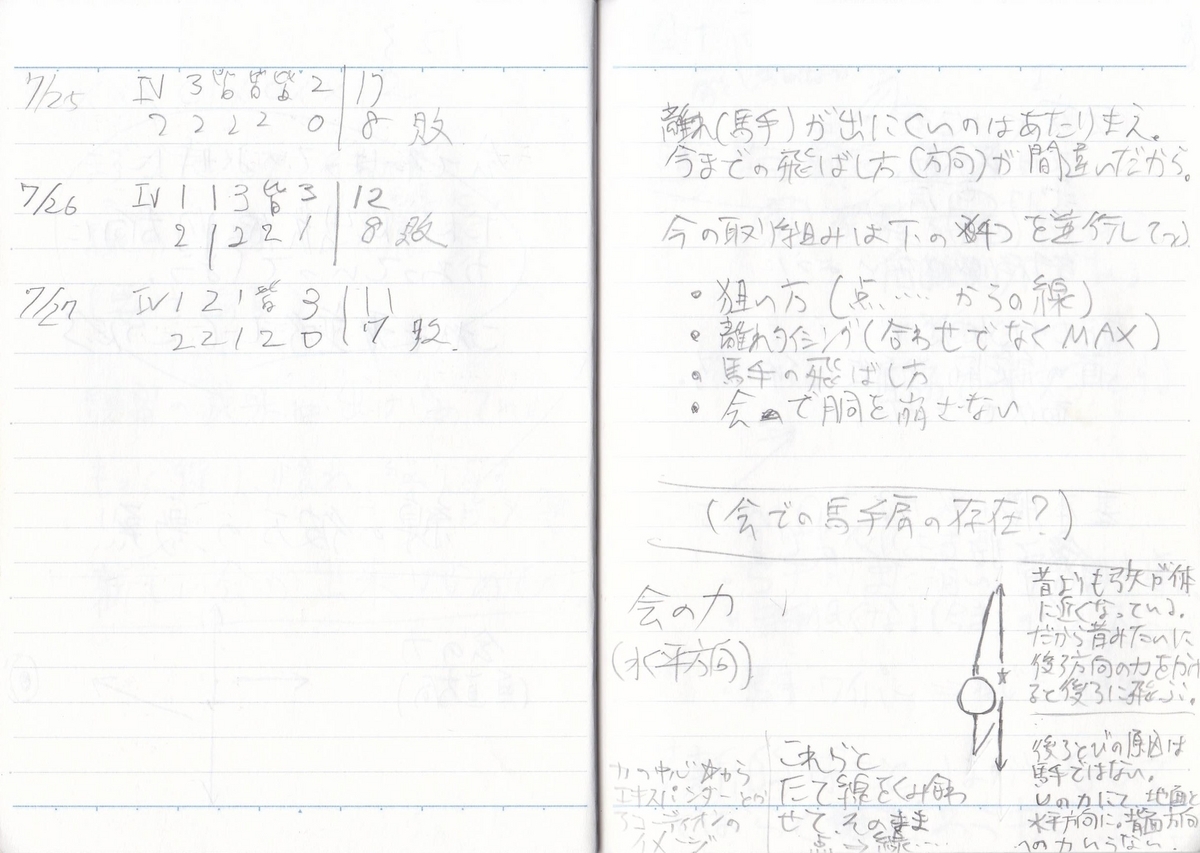 7/25 IV 3 皆 皆 皆 2 17
2 2 2 2 0 8 敗
7/26 IV 1 1 3 皆 3 12
2 1 2 2 1 8 敗
7/27 IV 1 2 1 皆 3 11
2 2 1 2 0 7 敗.
離れ(馬手)が出にくいのはあたりまえ。
今までの飛ばし方(方向)が間違いだから。
今の取り組みは下の 4つを並行してつ
• 狙い方(点…… からの線)
• 離れタイミング(合わせでなくMAX)
• 馬手の飛ばし方
• 会で胴を崩さない
(会での馬手肩の存在?)
会の力
(水平方向)
昔よりも弓矢が体
に近くなっている。
だから昔みたいに
後ろ方向の力をかけ
ると後ろに飛ぶ。
後ろとびの原因は
馬手ではない。
いの力にて地面と
水平方向に。背面方向
への力いらない.
力の中心☆から
エキスパンダーとか
アコーディオンの
イメージ
これらと
たて線をくみ合わ
せて、そのまま
点→線……